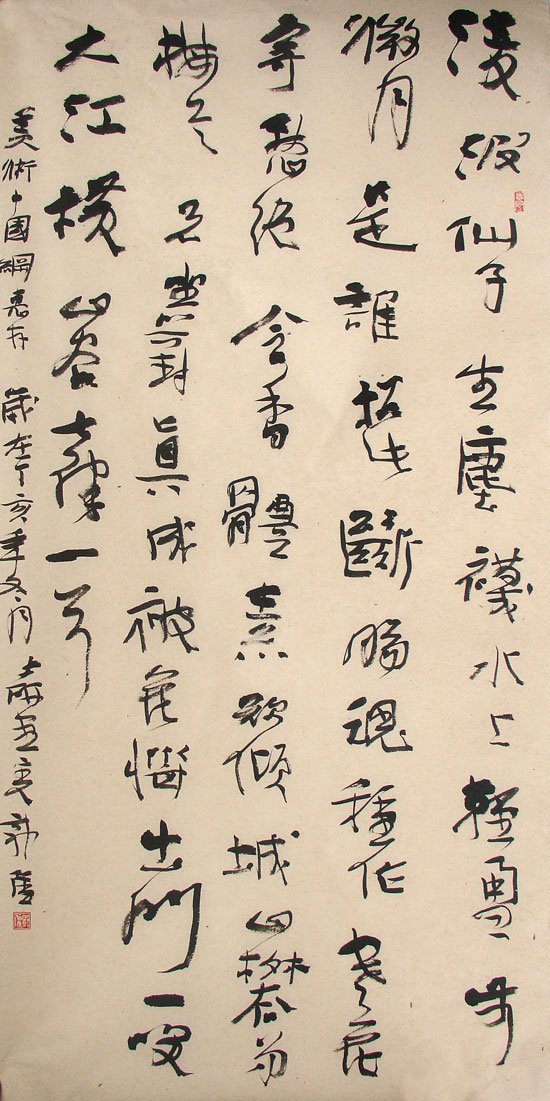 凌波仙子生塵襪水上輕盈步
微月是誰招此斷腸魂種作寒花
寄愁絕含香體素欲傾城山礬
梅兄對真成被花惱出門一笑
大江橫 山谷七律一首
美術中國網惠存 歲在丁亥年冬月